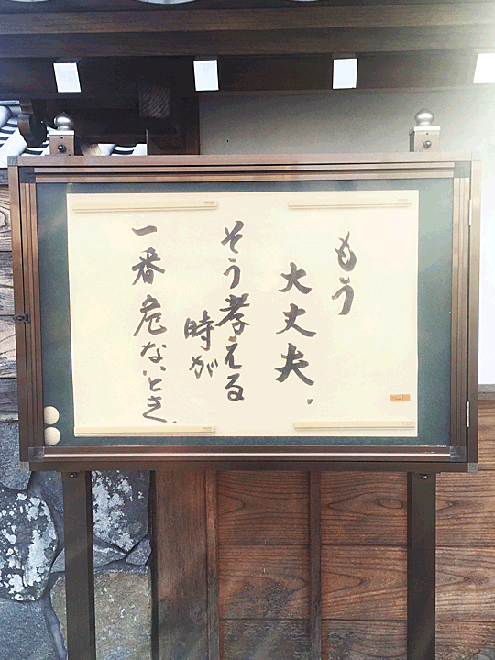 もう
大丈夫.
そう考える
時が
一番危ないとき.